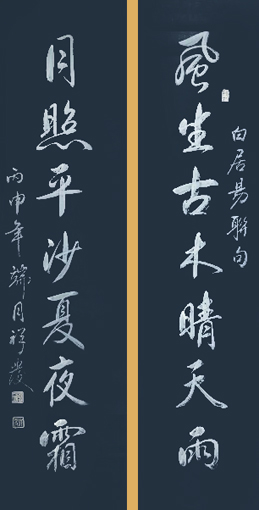 風生古木晴天雨
白居易聯句
月照平沙夏夜霜
丙申年韓月祥